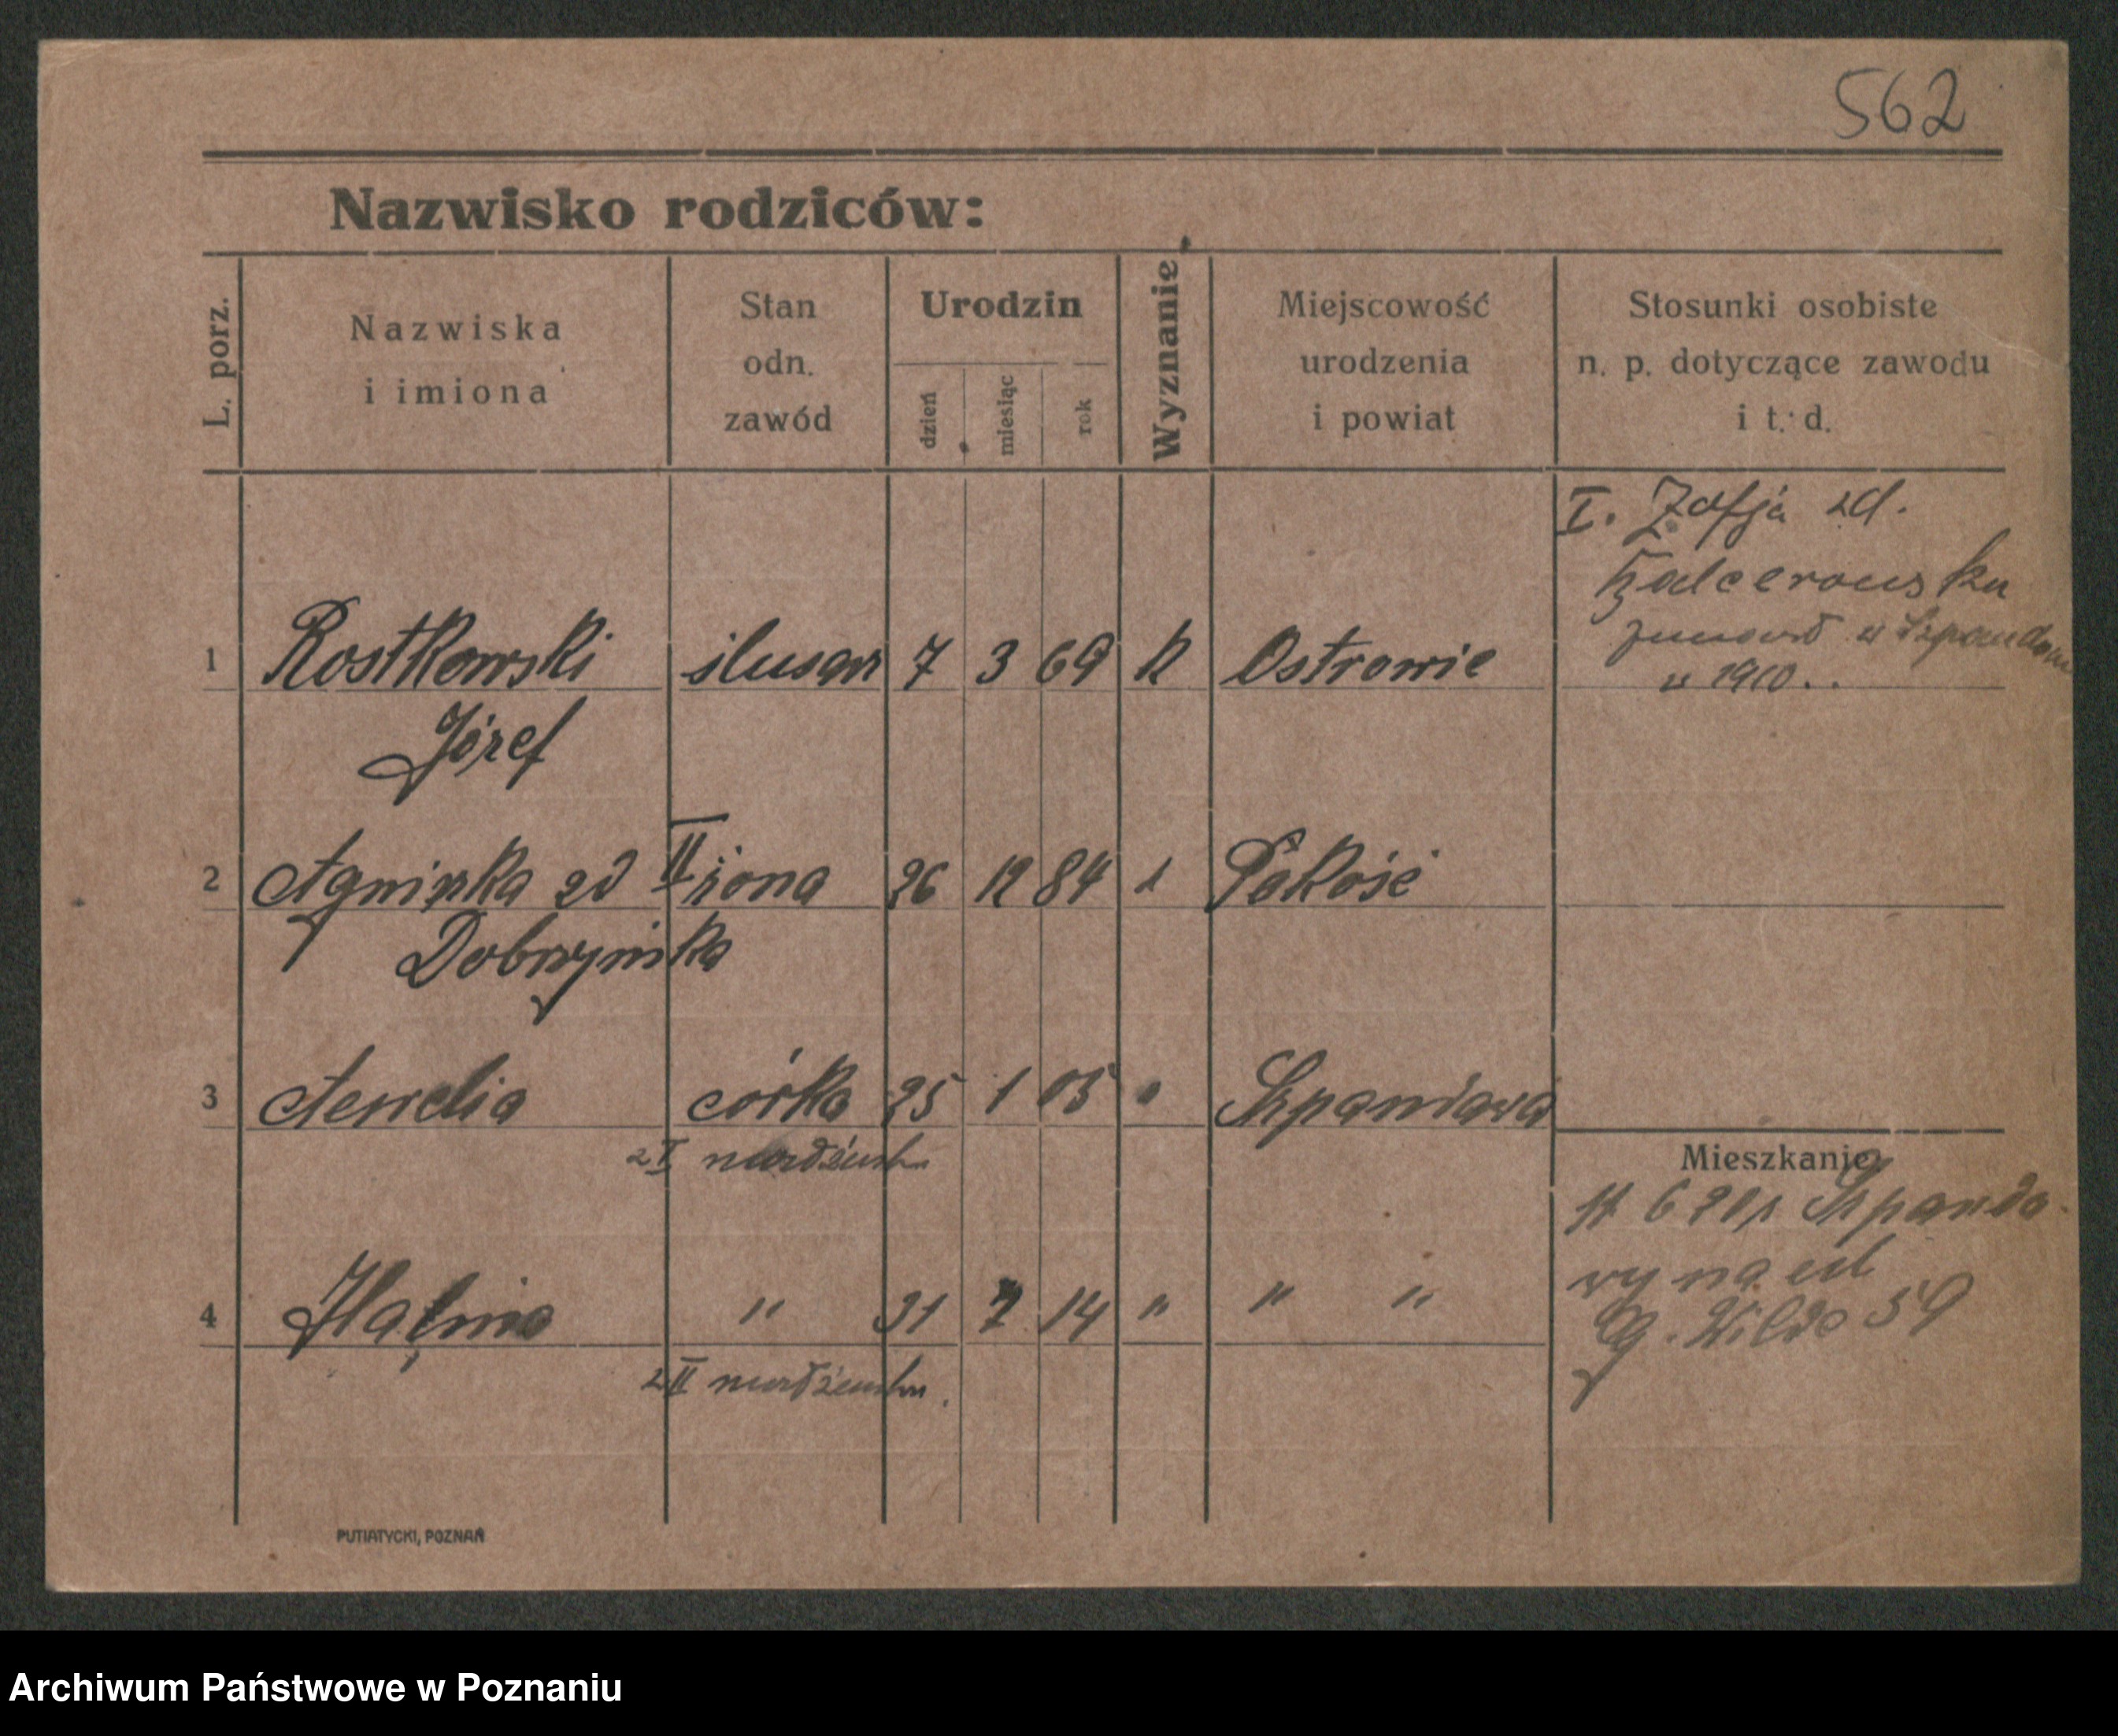 562
Nazwisko rodziców:
L. porz.
Nazwiska
i imiona
Stan
odn.
zawód
Urodzin
dzień
miesiąc
rok
Wyznanie
Miejscowość
urodzenia
i powiat
Stosunki osobiste
n. p. dotyczące zawodu
i t. d.
I. Zofja zd.
w 1910..
1 Rostkowski ślusarz 7 3 69 k Ostrowie
Józef
2 Agnieszka zd II żona 26 12 84 Pakość
Dobrzyńska
3 córka 25 1 05 " Szpandawa
z I małżeństwa
Mieszkanie
Szpando-
wy na ul
G. Wilda 59
4 Halina " 31 7 14 " " "
z II małżeństwa.
PUTIATYCKI, POZNAŃ
Archiwum Państwowe w Poznaniu